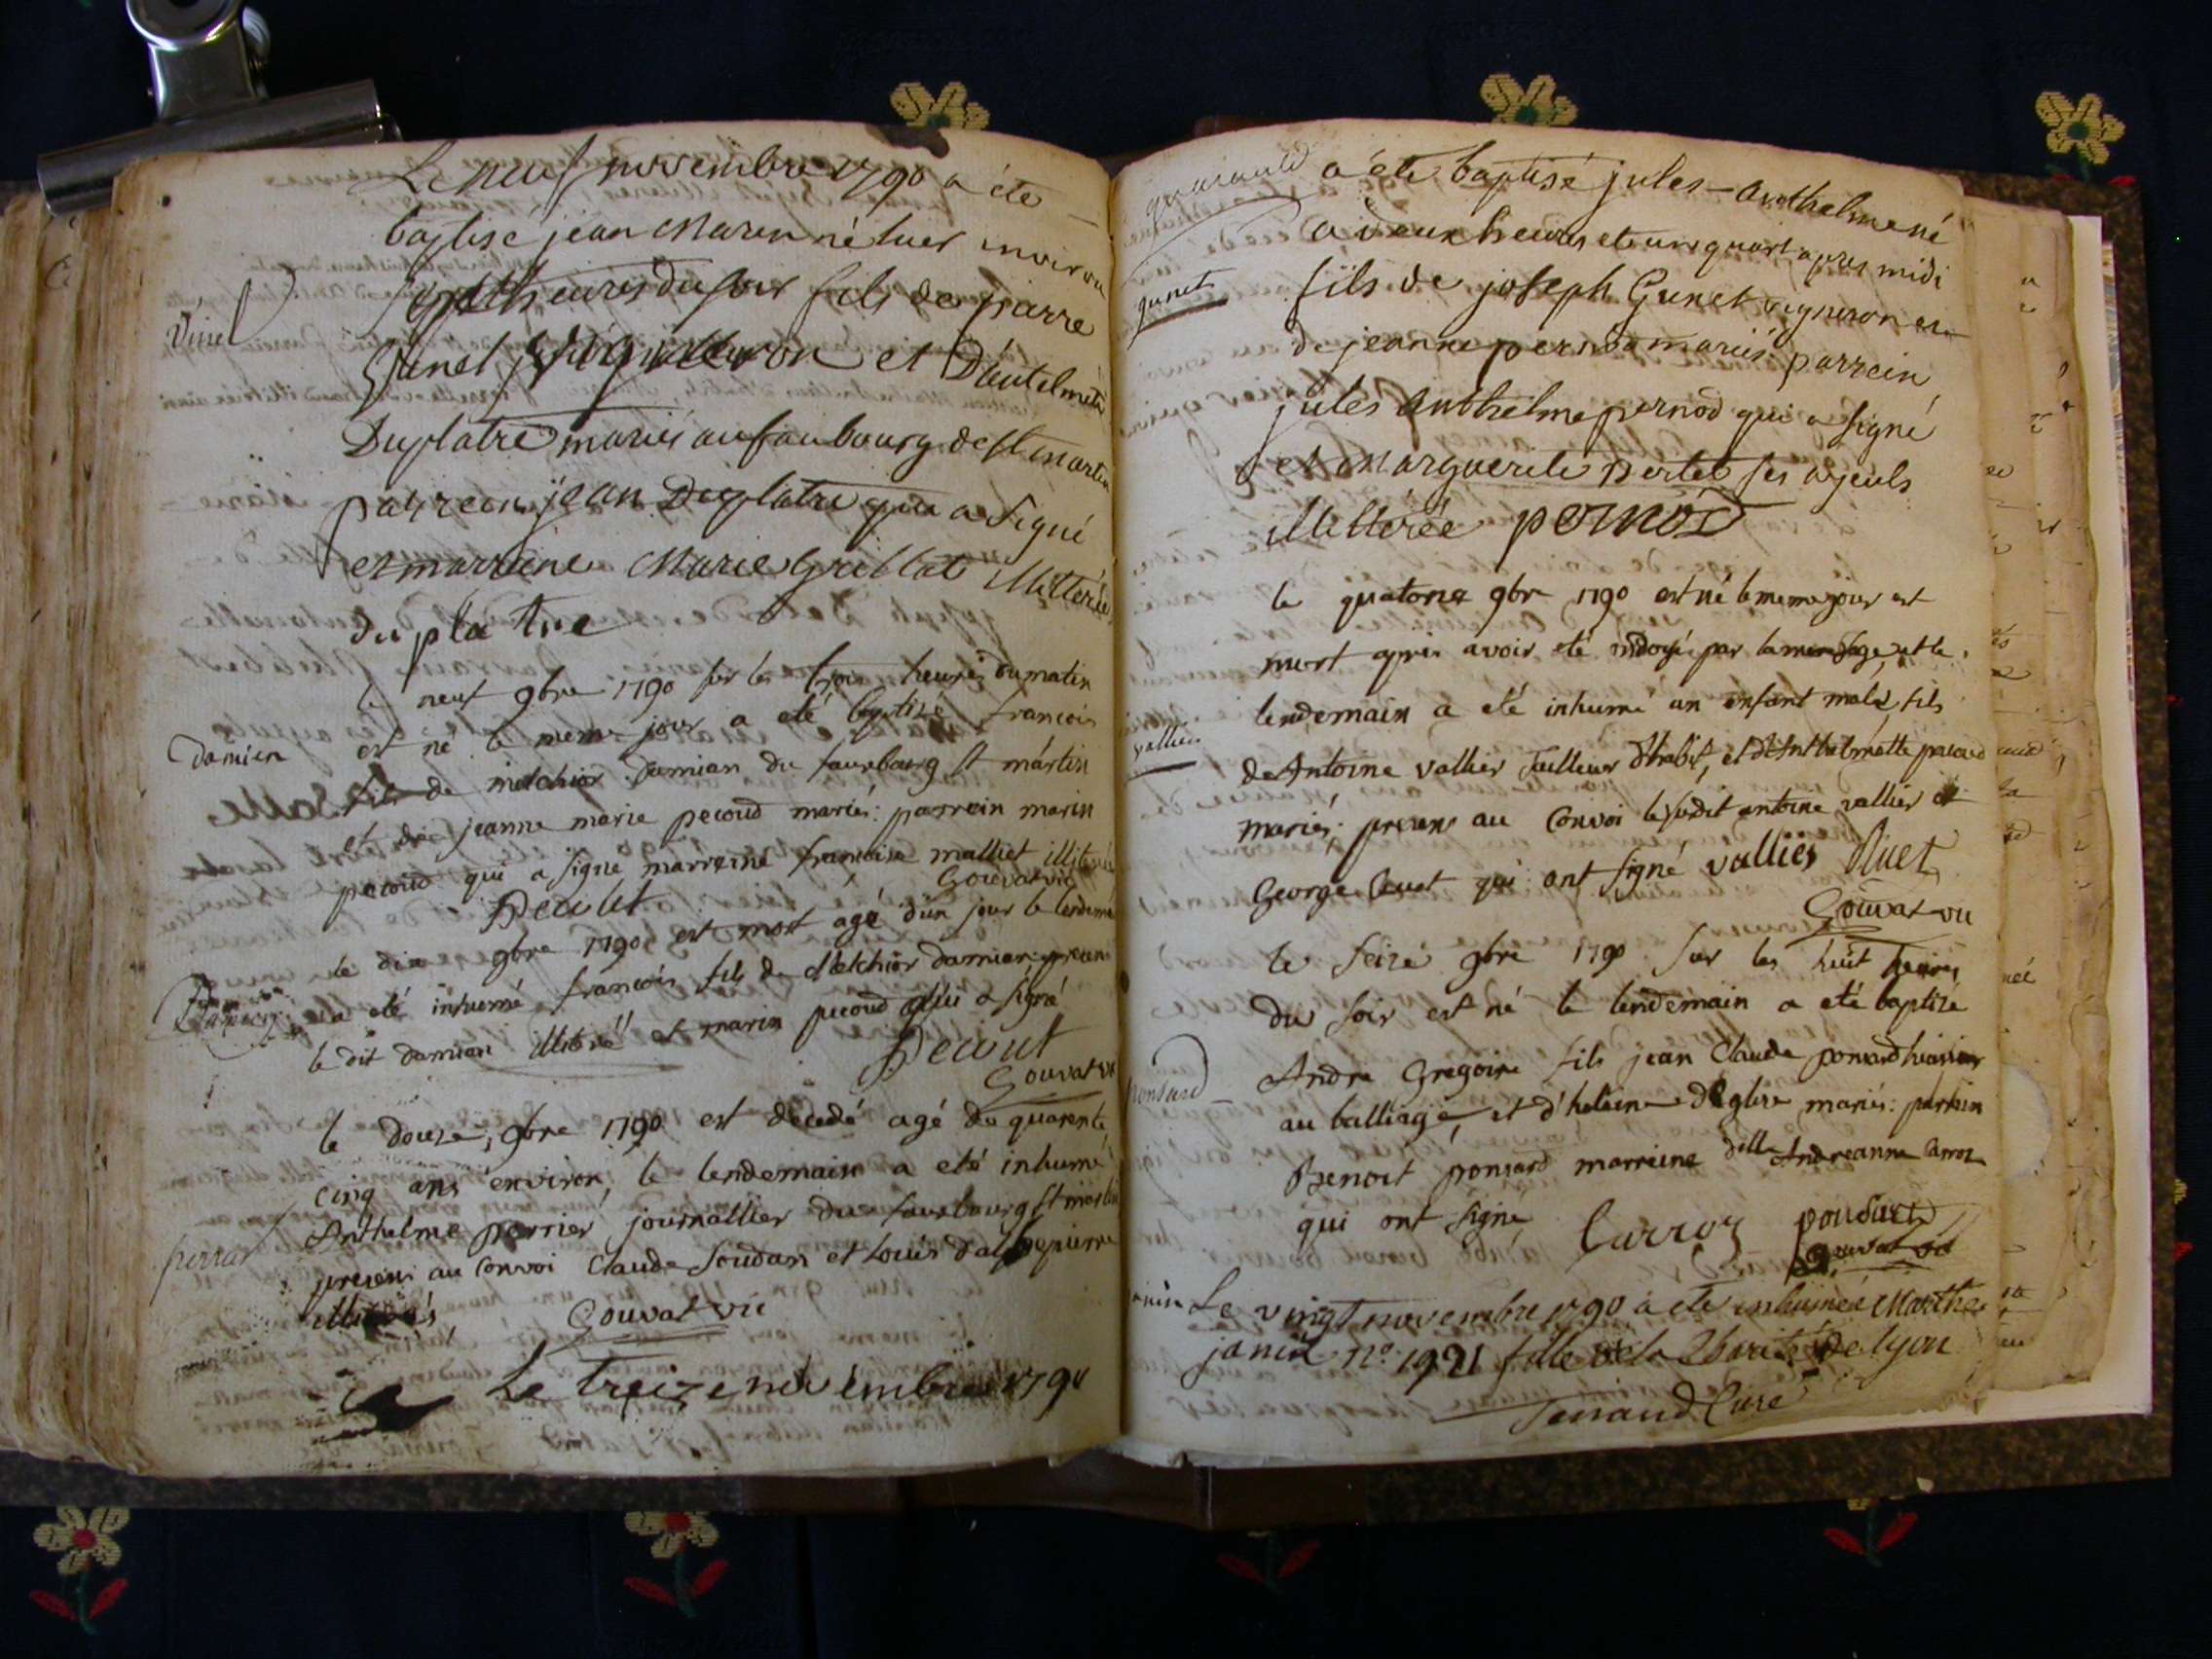 Le neuf novembre 1790 a été
baptisé jean Marin né hier environ
sept heures du soir fils de pierre
vinel
et D'antelmette
Duplatre mariés au faubourg de St martin
parrein jean Duplatre qui a signé
et marreine Marie Grillat illitérée
duplatre
le neuf 9bre 1790 sur les trois heures du matin
damien
est né le meme jour a eté baptizé francois
fils de melchior Damian du fauxbourg st martin
et de jeanne marie pecoud mariés: parrein marin
pecoud qui a signé marreine francoise malliet illiterée
pecout Gouvat vic
le dix 9bre 1790 est mort agé d'un jour le lendemain
a eté inhumé francois fils de Melchior damian presens
le dit damian illitéré et marin pecoud qui a signé
pecout
Gouvat vic
le douze 9bre 1790 est decedé agé de quarente
cinq ans environ, le lendemain a eté inhumé
perrier
Anthelme perrier journallier du fauxbourg st martin
presens au Convoi Claude Soudan et Louis
illiterés Gouvat vic
Le treize novembre 1790
a été baptisé jules-anthelme né
a deux heures et un quart apres midi
gunet
fils de joseph Gunet vigneron et
de jeanne pernod mariés parrein
jules anthelme pernod qui a signé
et Marguerite pertet ses ayeuls
illiterée pernod
le quatorze 9bre 1790 est né le meme jour est
mort apres avoir eté ondoyé par la mere sage et le
lendemain a eté inhumé un enfant male fils
vallier
de Antoine vallier Tailleur d'habit, et d'Anthelmette pecoud
mariés; presens au Convoi le susdit antoine vallier et
George qui ont signé vallier
Gouvat vic
le seize 9bre 1790 sur les huit heures
du soir est né le lendemain a eté baptizé
ponsard
Andre Gregoire fils jean Claude ponsard huissier
au balliage, et d'helene mariés: parrein
Benoit ponsard marreine dlle Andreanne Carroz
qui ont signé Carroz ponsard
Gouvat vic
janin
Le vingt novembre 1790 a été inhumée Marthe
janin no. 1921 fille de la Charité de lyon
Curé